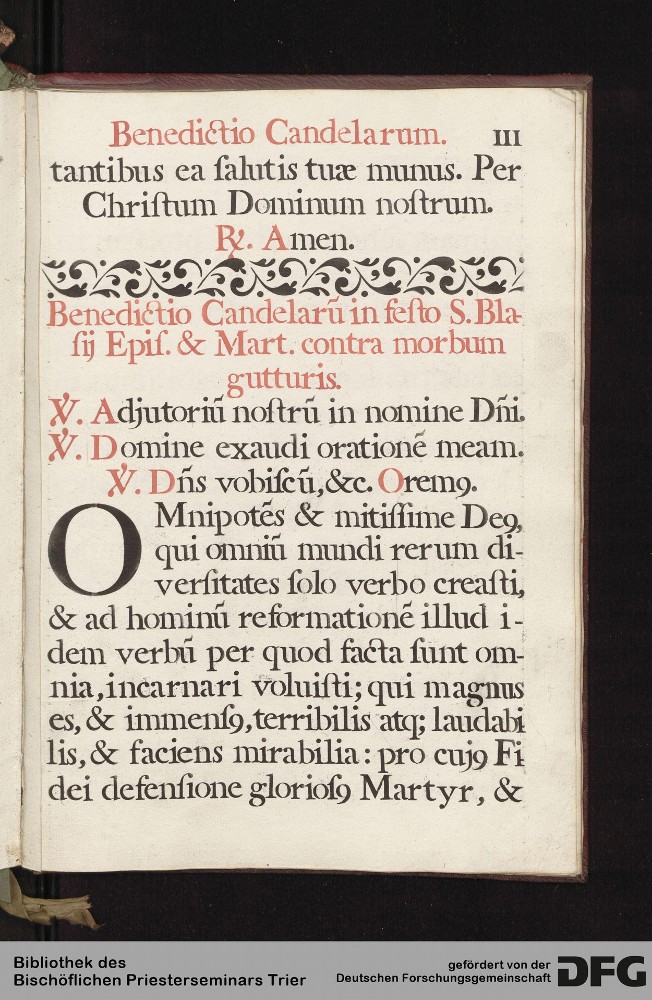 Benedictio Candelarum. III
tantibus ea ſalutis tuæ munus. Per
Chriſtum Dominum noſtrum.
℟. Amen.
Benedictio Candelarũ in feſto S. Bla-
ſij Epiſ. & Mart. contra morbum
gutturis.
℣. Adjutoriũ noſtrũ in nomine Dñi.
℣. Domine exaudi orationẽ meam.
℣. Dñs vobiſcũ, &c. Oremꝯ.
OMnipotẽs & mitiſſime Deꝯ,
qui omniũ mundi rerum di-
verſitates ſolo verbo creaſti,
& ad hominũ reformationẽ illud i-
dem verbũ per quod facta ſunt om-
nia, incarnari voluiſti; qui magnus
es, & immenſꝯ, terribilis atq; laudabi
lis, & faciens mirabilia: pro cujꝯ Fi
dei defenſione glorioſꝯ Martyr, &
Bibliothek des
Bischöflichen Priesterseminars Trier
gefördert von der
Deutschen Forschungsgemeinschaft
DFG